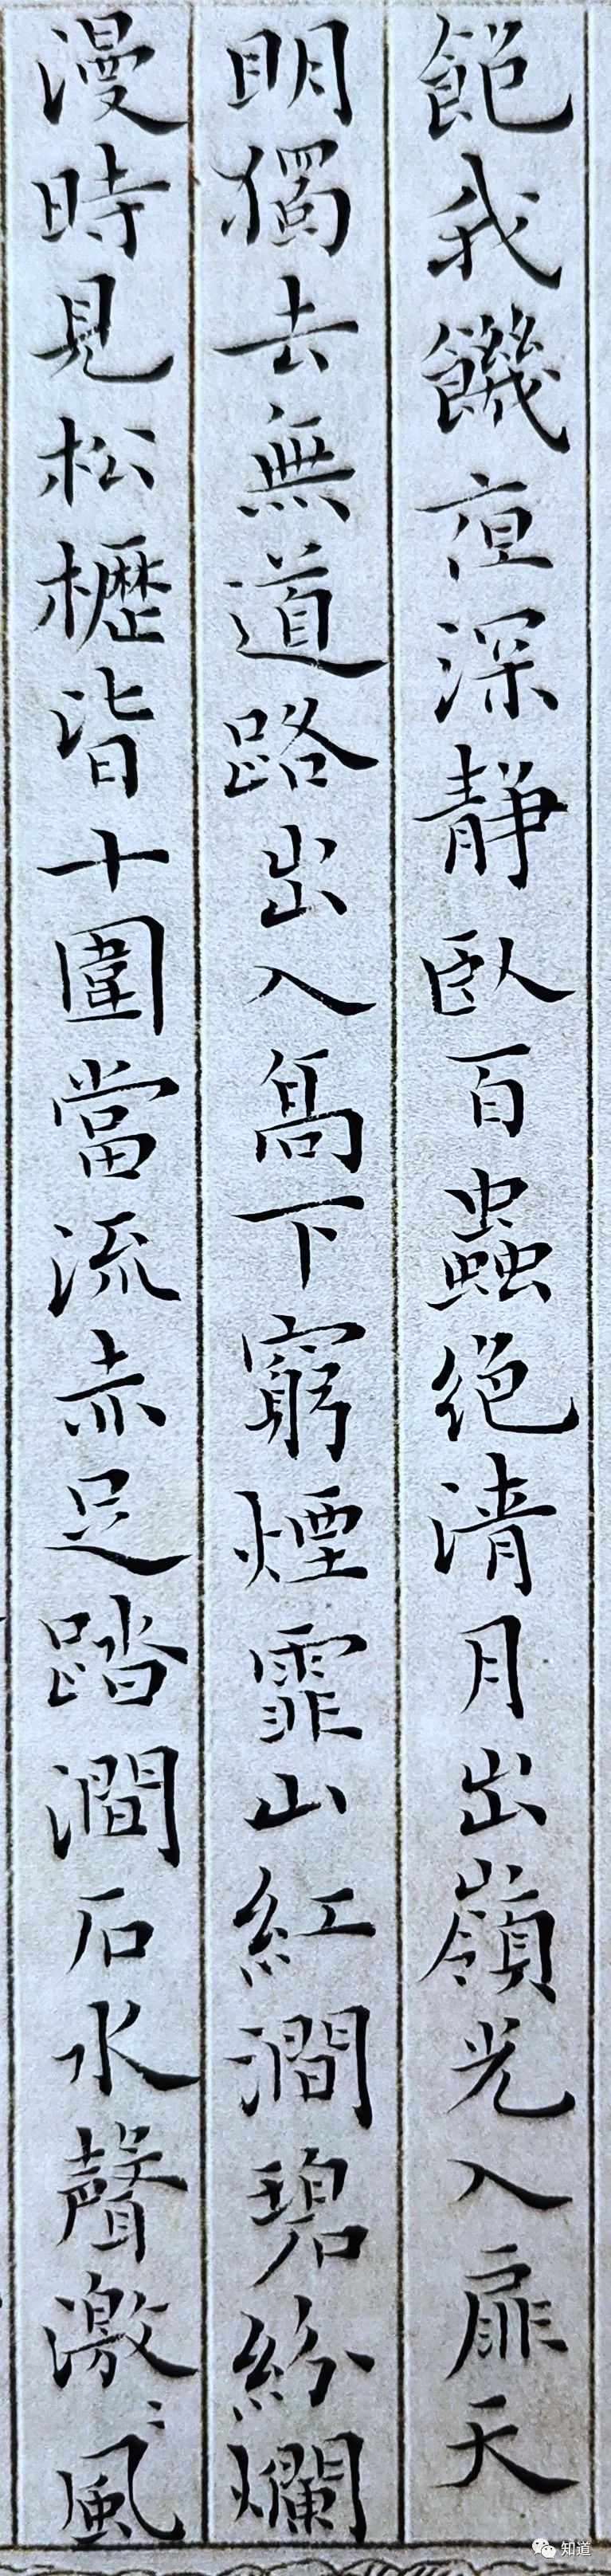 飽我饑夜深靜臥百蟲絕清月出嶺光入扉天
明獨去無道路出入高下窮煙霏山紅澗碧紛爛
漫時見松櫪皆十圍當流赤足踏澗石水聲激〻風
知道